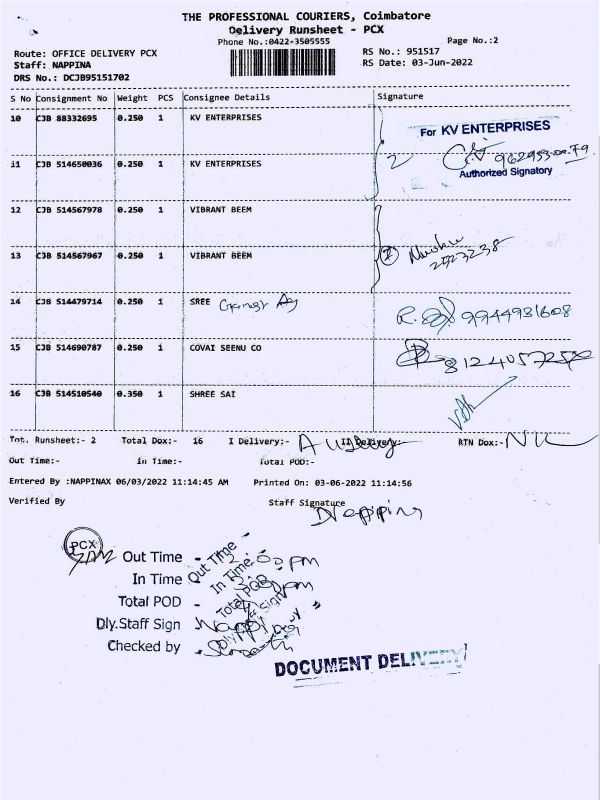 THE PROFESSIONAL COURIERS, Coimbatore
Delivery Runsheet - PCX
Phone No.:0422-3505555
Page No.:2
Route: OFFICE DELIVERY PCX
RS No.: 951517
Staff: NAPPINA
RS Date: 03-Jun-2022
DRS No.: DCJB95151702
S No Consignment No Weight PCS Consignee Details Signature
10 CJB 88332695 0.250 1 KV ENTERPRISES
For KV ENTERPRISES
11 CJB 514650036 0.250 1 KV ENTERPRISES
2
Authorized Signatory
12 CJB 514567978 0.250 1 VIBRANT BEEM
13 CJB 514567967 0.250 1 VIBRANT BEEM
14 CJB 514479714 0.250 1 SREE
9944931608
15 CJB 514690787 0.250 1 COVAI SEENU CO
16 CJB 514510540 0.350 1 SHREE SAI
Tot. Runsheet:- 2 Total Dox:- 16 I Delivery:- II Delivery:- RTN Dox:-
Out Time:- in Time:- Total POD:-
Entered By :NAPPINAX 06/03/2022 11:14:45 AM Printed On: 03-06-2022 11:14:56
Verified By Staff Signature
Nappina
PCX
Out Time - Out Time -
In Time - In Time -
Total POD - Total POD
Dly.Staff Sign -
Checked by -
DOCUMENT DELIVERY